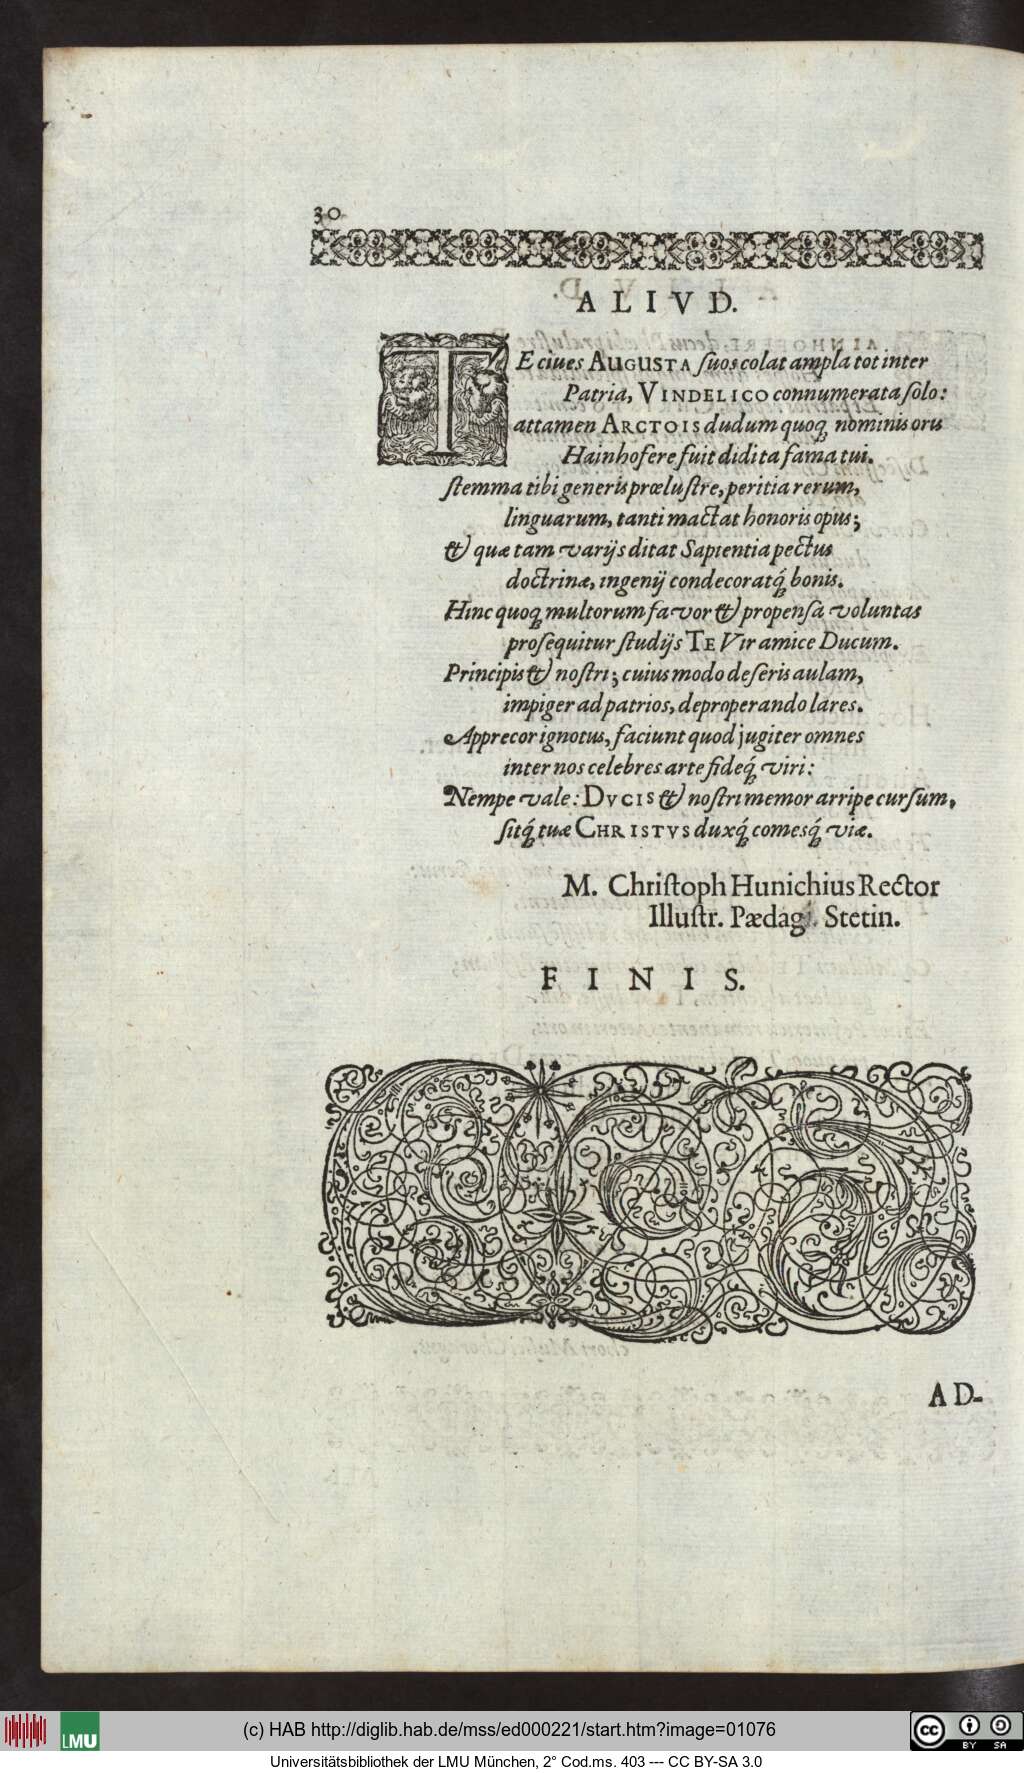 30
ALIVD.
TE ciues AUGUSTA ſuos colat ampla tot inter
Patria, VINDELICO connumerata ſolo:
attamen ARCTOIS dudum quoq́ nominis oris
Hainhofere fuit didita fama tui.
ſtemma tibi generis præluſtre, peritia rerum,
linguarum, tanti mactat honoris opus;
& quæ tam varijs ditat Sapientia pectus
doctrinæ, ingenij condecoratq́ bonis.
Hinc quoq́ multorum favor & propenſa voluntas
proſequitur ſtudijs TE Vir amice Ducum.
Principis & noſtri; cuius modo deſeris aulam,
impiger ad patrios, deproperando lares.
Apprecor ignotus, faciunt quod jugiter omnes
inter nos celebres arte fideq́ viri:
Nempe vale: DVCIS & noſtri memor arripe curſum,
ſitq́ tuæ CHRISTVS duxq́ comesq́ viæ.
M. Chriſtoph Hunichius Rector
Illuſtr. Pædag. Stetin.
FINIS.
AD-
LMU
(c) HAB http://diglib.hab.de/mss/ed000221/start.htm?image=01076
cc BY SA
Universitätsbibliothek der LMU München, 2° Cod.ms. 403 --- CC BY-SA 3.0